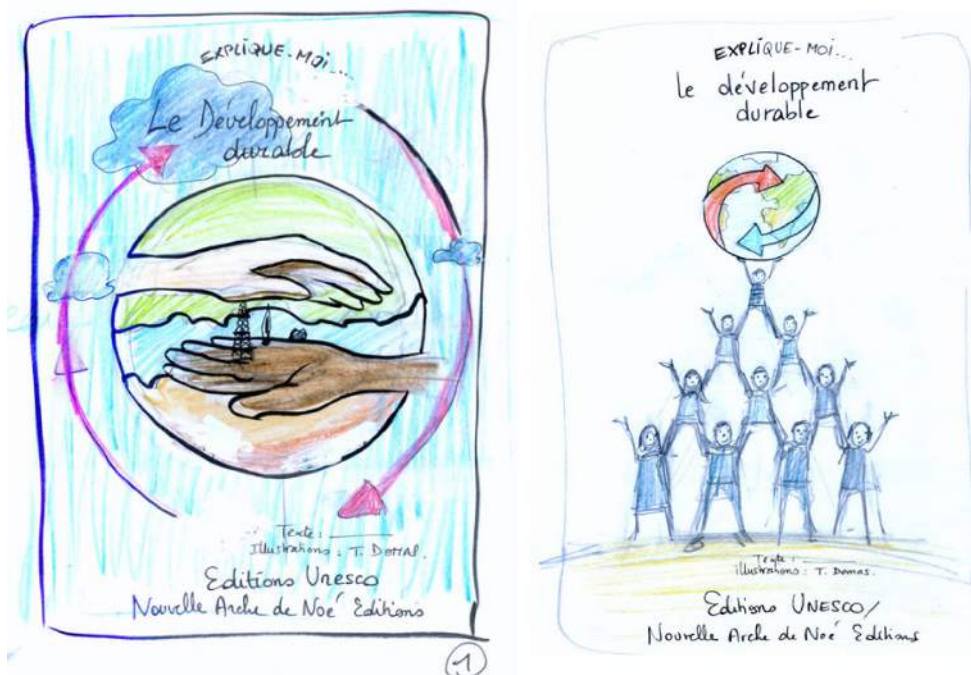 EXPLIQUE-MOI....
Le Développement
durable
Texte : ________
Illustrations : T. DOMAS.
Editions UNESCO
Nouvelle Arche de Noé Editions
1
EXPLIQUE-MOI...
le développement
durable
Texte : ________
illustrations : T. Domas.
Editions UNESCO/
Nouvelle Arche de Noé Editions